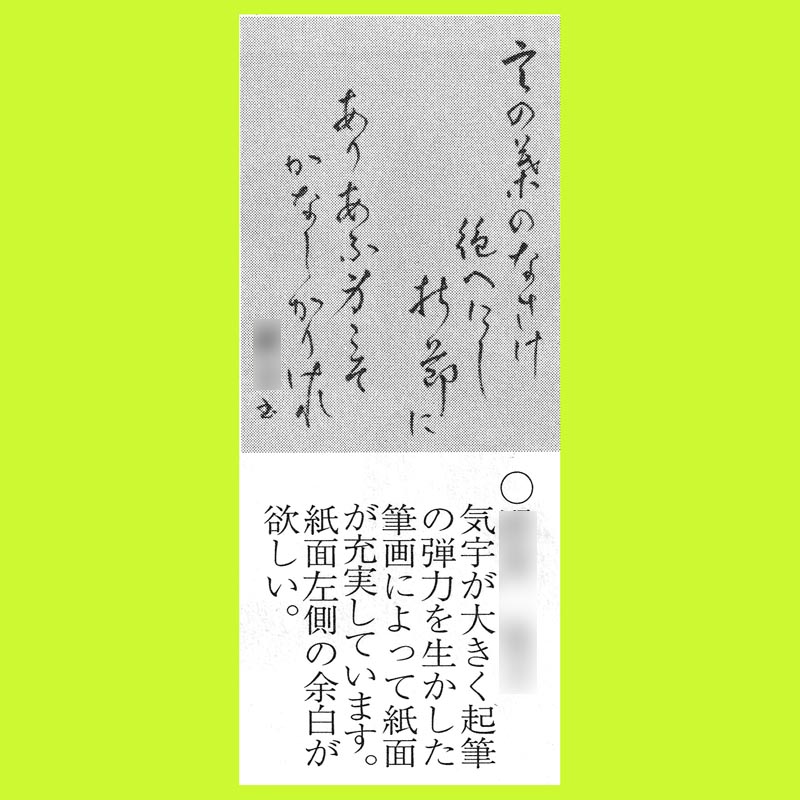 言の葉のなさけ
絶へにし
折節に
ありあふ身こそ
かなしかりけれ
書
○
気宇が大きく起筆
の弾力を生かした
筆画によって紙面
が充実しています。
紙面左側の余白が
欲しい。